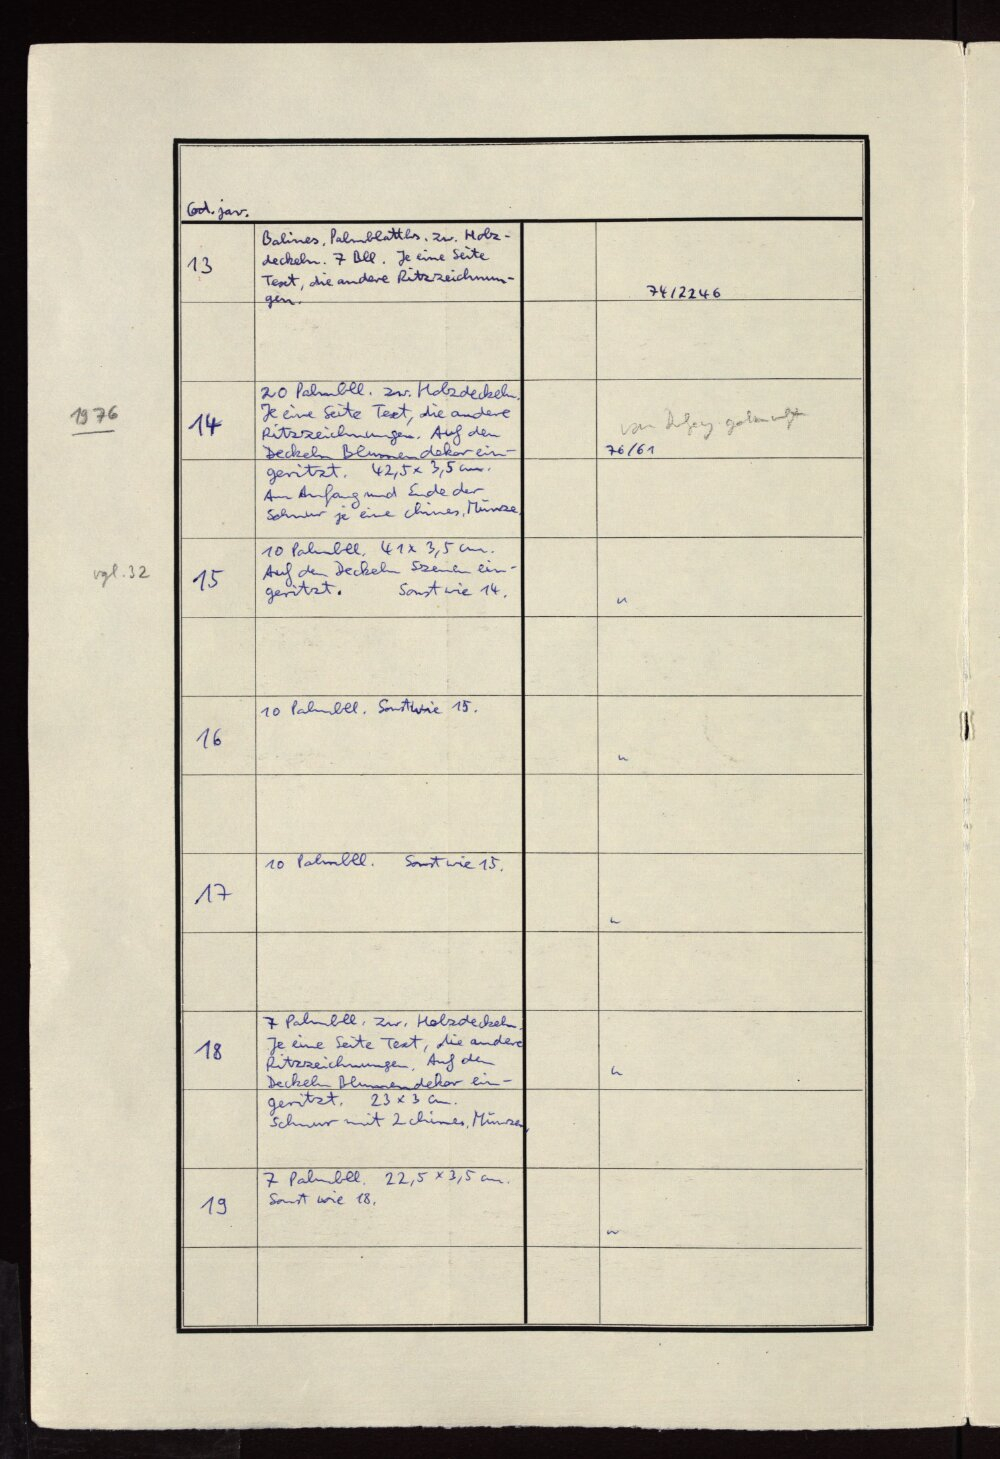 Cod. jav.
13
Balines. Palmblatths. zw. Holz-
deckeln. 7 Bll. Je eine Seite
Text, die andere Ritzzeichnun-
gen.
74/2246
1976
14
20 Palmbll. zw. Holzdeckeln.
Je eine Seite Text, die andere
Ritzzeichnungen. Auf den
Deckeln Blumendekor ein-
geritzt. 42,5 x 3,5 cm.
Am Anfang und Ende der
Schnur je eine chines. Münze.
von
76/61
vgl. 32
15
10 Palmbll. 41 x 3,5 cm.
Auf den Deckeln Szenen ein-
geritzt. Sonst wie 14.
"
16
10 Palmbll. Sonst wie 15.
"
17
10 Palmbll. Sonst wie 15.
"
18
7 Palmbll. zw. Holzdeckeln.
Je eine Seite Text, die andere
Ritzzeichnungen. Auf den
Deckeln Blumendekor ein-
geritzt. 23 x 3 cm.
Schnur mit 2 chines. Münzen.
"
19
7 Palmbll. 22,5 x 3,5 cm.
Sonst wie 18.
"